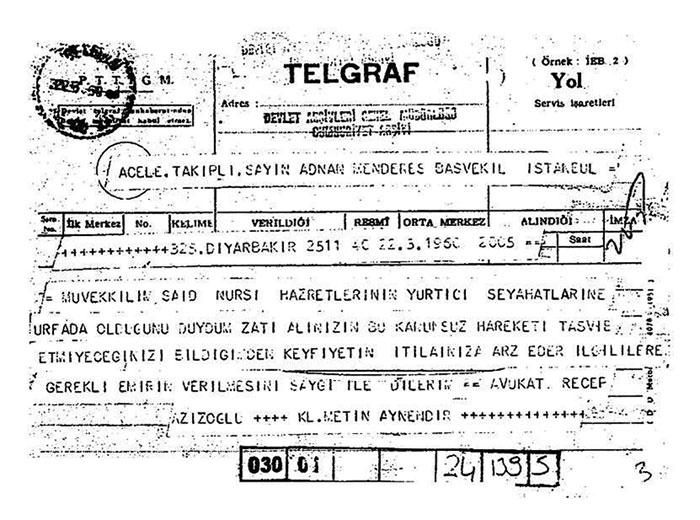 P. T. T. GM.
TELGRAF
( Örnek : İEB 2 )
Yol
Servis işaretleri
Adres :
DEVLET ARŞİVLERİ GENEL MÜDÜRLÜĞÜ
CUMHURİYET ARŞİVİ
ACELE.TAKIPLI.SAYIN ADNAN MENDERES BASVEKIL ISTANBUL =
Sıra No. İlk Merkez No. KELIME VERİLDİĞİ RESMİ ORTA MERKEZ ALINDIĞI İMZA
Saat
++++++++++++325.DIYARBAKIR 2511 40 22.3.1960 2005 ==
= MUVEKKILIM SAID NURSI HAZRETLERININ YURTICI SEYAHATLARINE
URFADA OLDUGUNU DUYDUM ZATI ALINIZIN BU KANUNSUZ HAREKETI TASVIB
ETMIYECEGINIZI BILDIGIMDEN KEYFIYETIN ITILAINIZA ARZ EDER ILGILILERE
GEREKLI EMIRIN VERILMESINI SAYGI ILE DILERIM == AVUKAT. RECEP
AZIZOGLU ++++ KL.METIN AYNENDIR ++++++++++++++
030 01 24 139 5
3